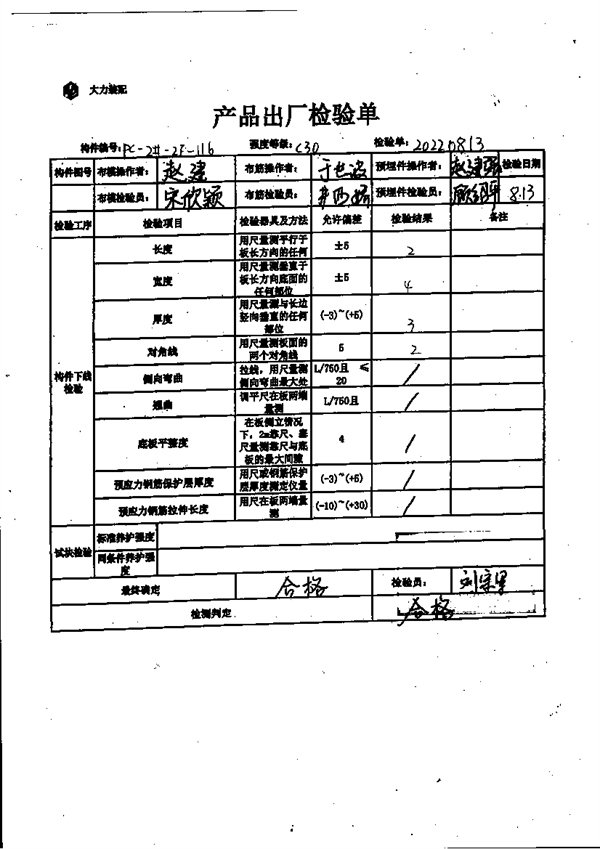 大力装配
产品出厂检验单
构件编号: PC-2#-2F-116 强度等级: C30 检验单: 20220813
构件图号 布模操作者: 赵建 布筋操作者: 预埋件操作者: 赵建强 检验日期
布模检验员: 宋欣颖 布筋检验员: 预埋件检验员: 8.13
检验工序 检验项目 检验器具及方法 允许偏差 检验结果 备注
构件下线检验
长度 用尺量测平行于板长方向的任何 ±5 2
宽度 用尺量测垂直于板长方向底面的任何部位 ±5 4
厚度 用尺量测与长边竖向垂直的任何部位 (-3)~(+5) 3
对角线 用尺量测板面的两个对角线 5 2
侧向弯曲 拉线,用尺量测侧向弯曲最大处 L/750且 ≤20 /
翘曲 调平尺在板两端量测 L/750且 /
底板平整度 在板侧立情况下,2m靠尺、塞尺量测靠尺与底板的最大间隙 4 /
预应力钢筋保护层厚度 用尺或钢筋保护层厚度测定仪量 (-3)~(+5) /
预应力钢筋拉伸长度 用尺在板两端量测 (-10)~(+30) /
试块检验 标准养护强度
同条件养护强度
最终确定 合格 检验员:
检测判定 合格